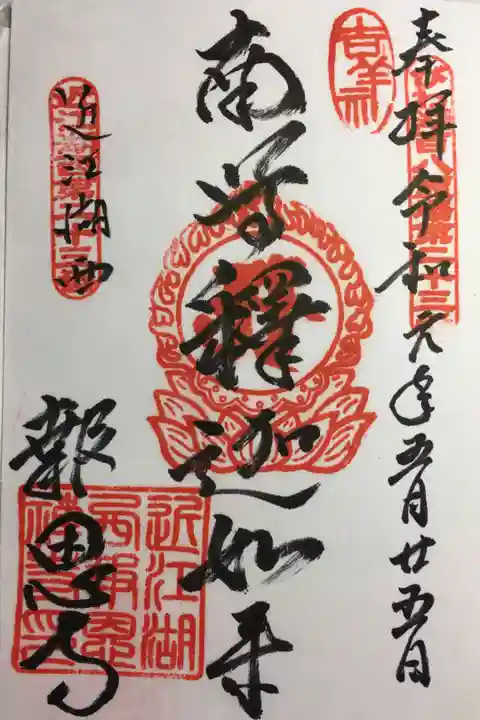 奉拝 令和元年五月廿五日
南無釋迦如来
近江湖西
報恩寺
近江湖
西報恩
禅寺印